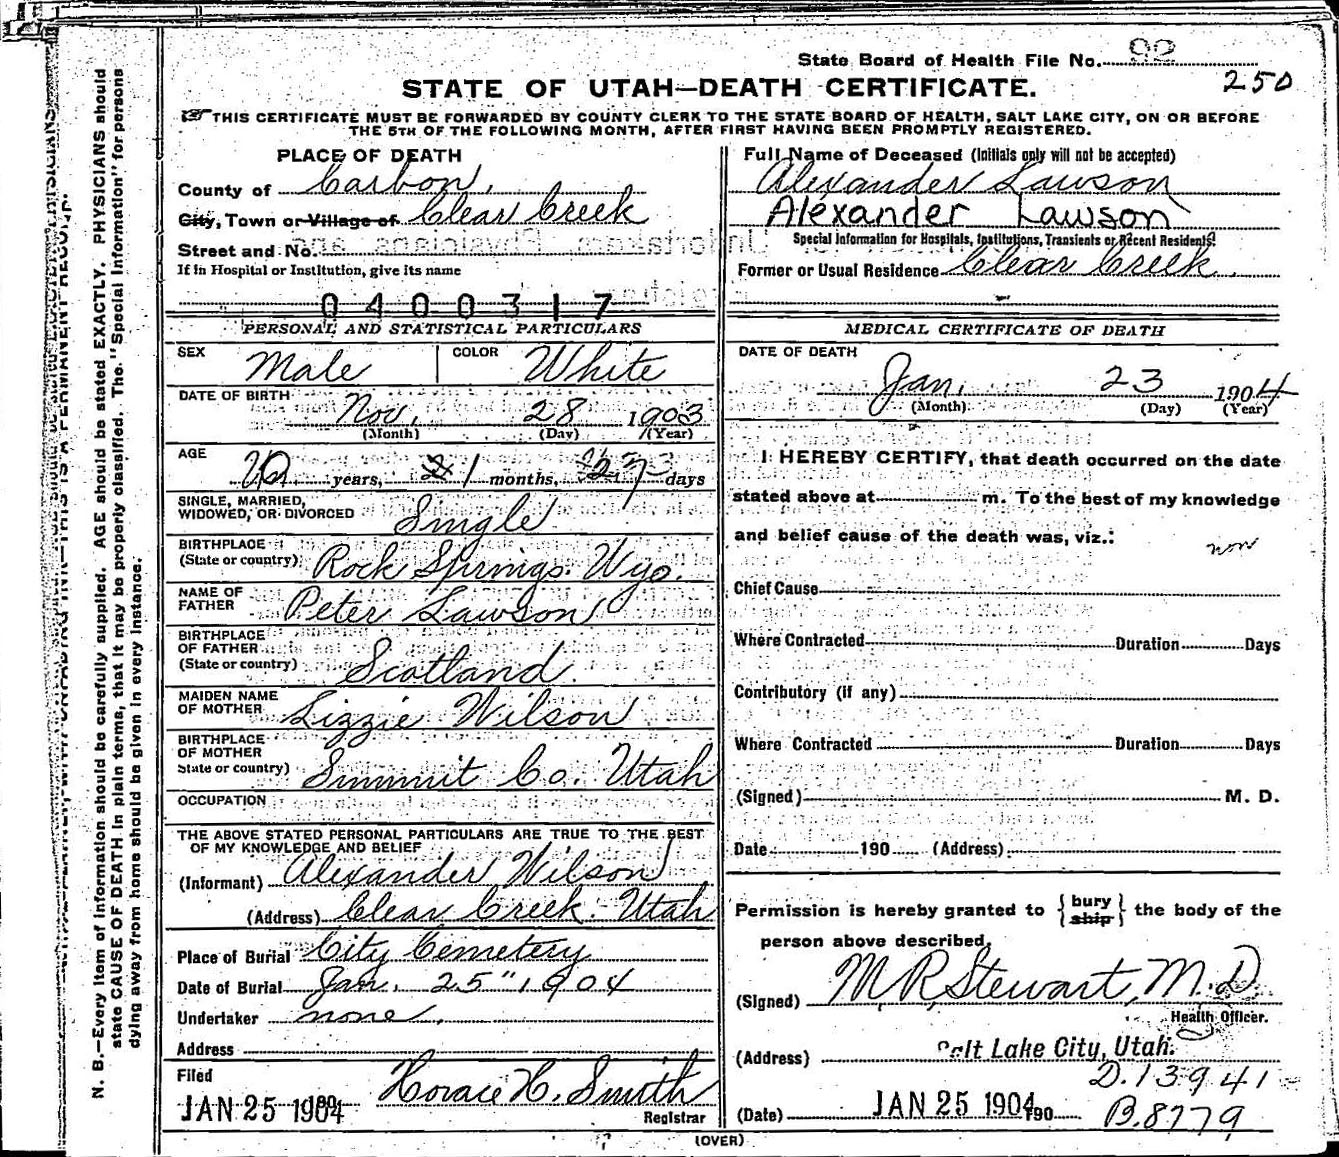 State Board of Health File No. 92
250
STATE OF UTAH—DEATH CERTIFICATE.
THIS CERTIFICATE MUST BE FORWARDED BY COUNTY CLERK TO THE STATE BOARD OF HEALTH, SALT LAKE CITY, ON OR BEFORE
THE 5TH OF THE FOLLOWING MONTH, AFTER FIRST HAVING BEEN PROMPTLY REGISTERED.
PLACE OF DEATH
County of Carbon.
City, Town or Village of Clear Creek
Street and No.
If in Hospital or Institution, give its name
0400317
Full Name of Deceased (Initials only will not be accepted)
Alexander Lawson
Alexander Lawson
Special Information for Hospitals, Institutions, Transients or Recent Residents:
Former or Usual Residence Clear Creek.
PERSONAL AND STATISTICAL PARTICULARS
SEX Male COLOR White
DATE OF BIRTH
Nov. 28 1903
(Month) (Day) (Year)
AGE
years, 1 months, 27 days
SINGLE, MARRIED,
WIDOWED, OR DIVORCED Single
BIRTHPLACE
(State or country) Rock Springs. Wyo.
NAME OF
FATHER Peter Lawson
BIRTHPLACE
OF FATHER
(State or country) Scotland.
MAIDEN NAME
OF MOTHER Lizzie Wilson
BIRTHPLACE
OF MOTHER
State or country) Summit Co. Utah
OCCUPATION
THE ABOVE STATED PERSONAL PARTICULARS ARE TRUE TO THE BEST
OF MY KNOWLEDGE AND BELIEF
(Informant) Alexander Wilson
(Address) Clear Creek. Utah
Place of Burial City Cemetery
Date of Burial Jan. 25" 1904
Undertaker none.
Address
Filed
JAN 25 1904 Horace H. Smith
Registrar
MEDICAL CERTIFICATE OF DEATH
DATE OF DEATH
Jan. 23 1904
(Month) (Day) (Year)
I HEREBY CERTIFY, that death occurred on the date
stated above at m. To the best of my knowledge
and belief cause of the death was, viz.:
non
Chief Cause
Where Contracted Duration Days
Contributory (if any)
Where Contracted Duration Days
(Signed) M. D.
Date 190 (Address)
Permission is hereby granted to { bury ship } the body of the
person above described,
(Signed) M R Stewart, M.D
Health Officer.
(Address) Salt Lake City, Utah.
D.13941
(Date) JAN 25 1904 190
B.8779
(OVER)
N. B.—Every item of information should be carefully supplied. AGE should be stated EXACTLY. PHYSICIANS should
state CAUSE OF DEATH in plain terms, that it may be properly classified. The "Special Information" for persons
dying away from home should be given in every instance.